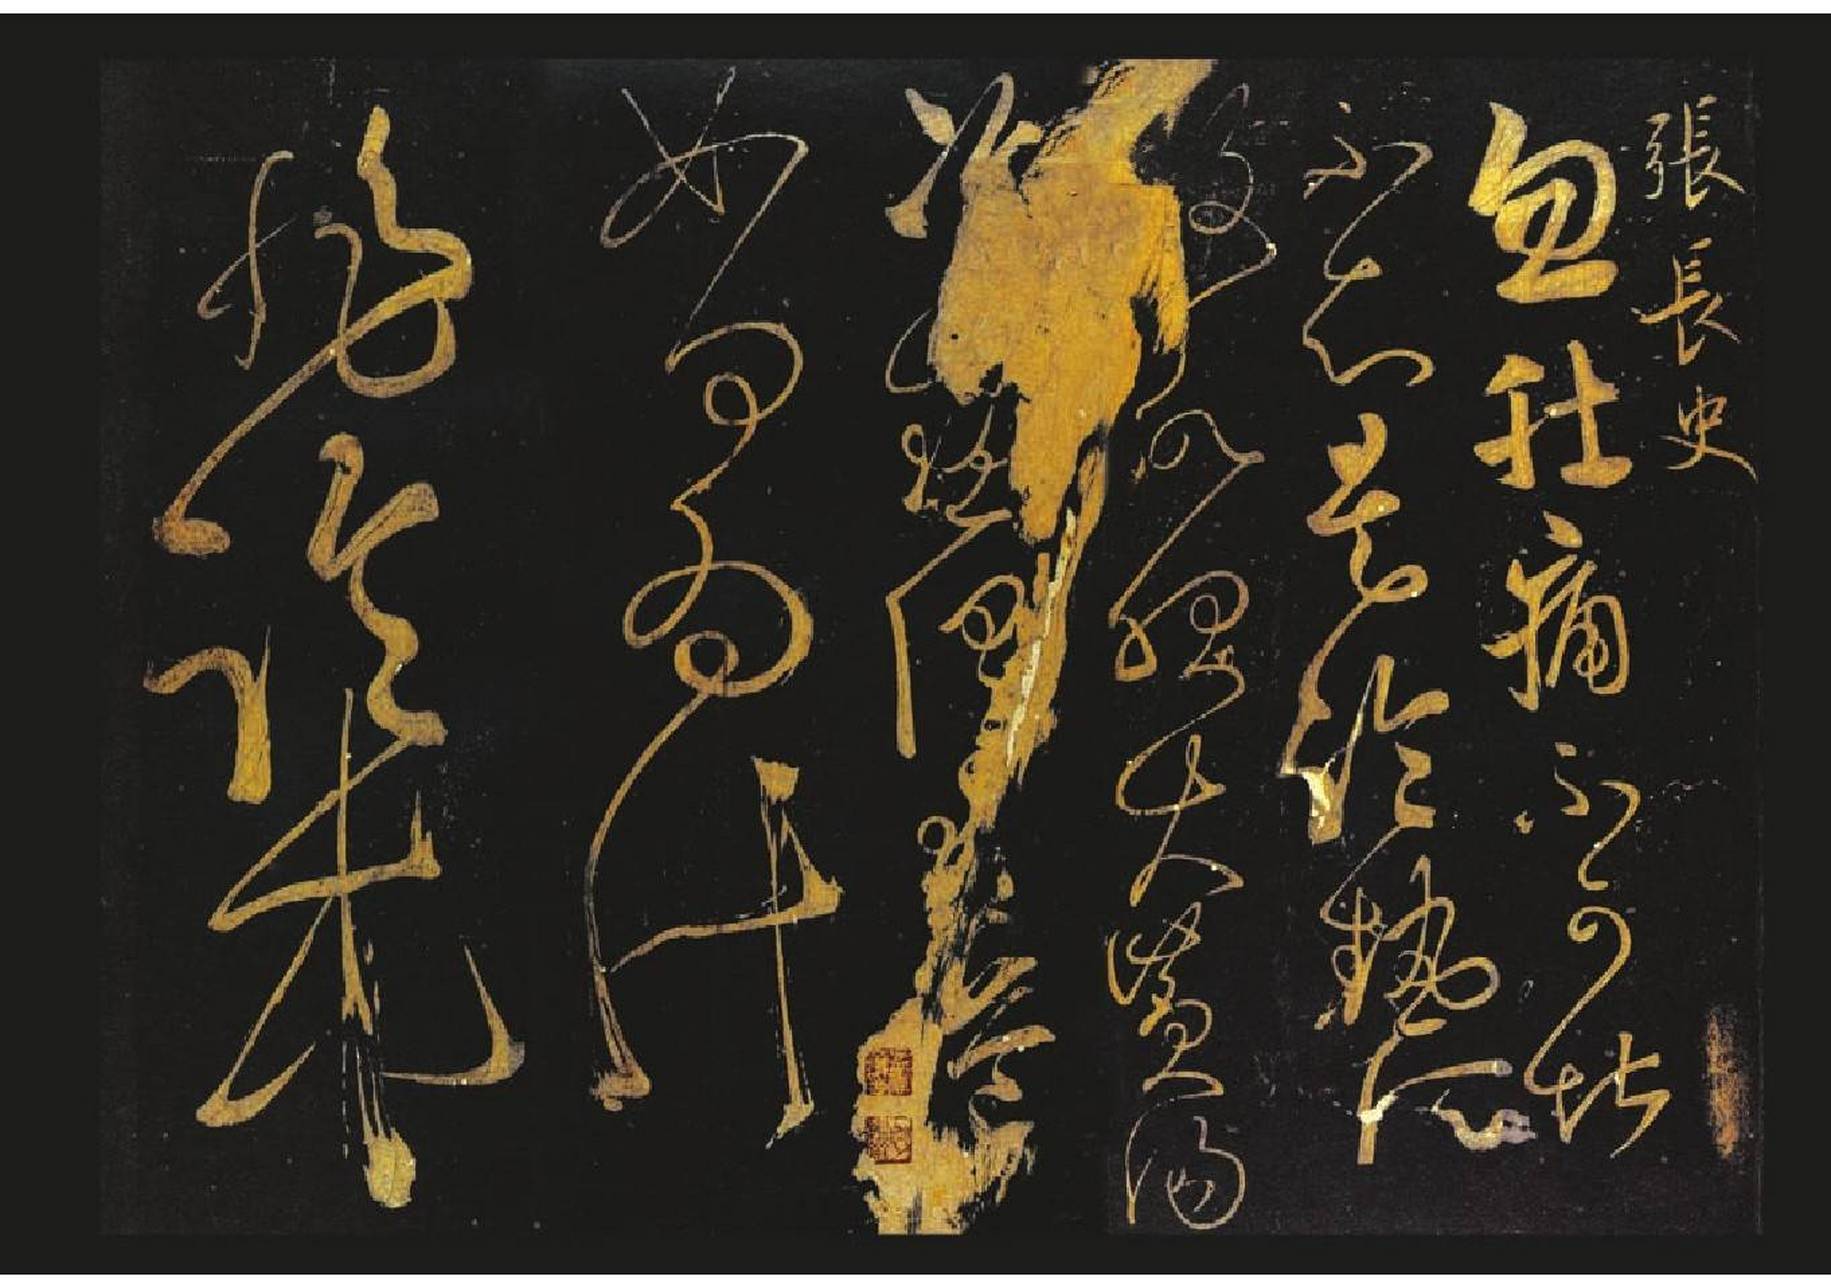 張長史
忽肚痛不可堪
不知是冷熱所
致欲服大黃湯
冷熱俱有益
如何為計
非臨床